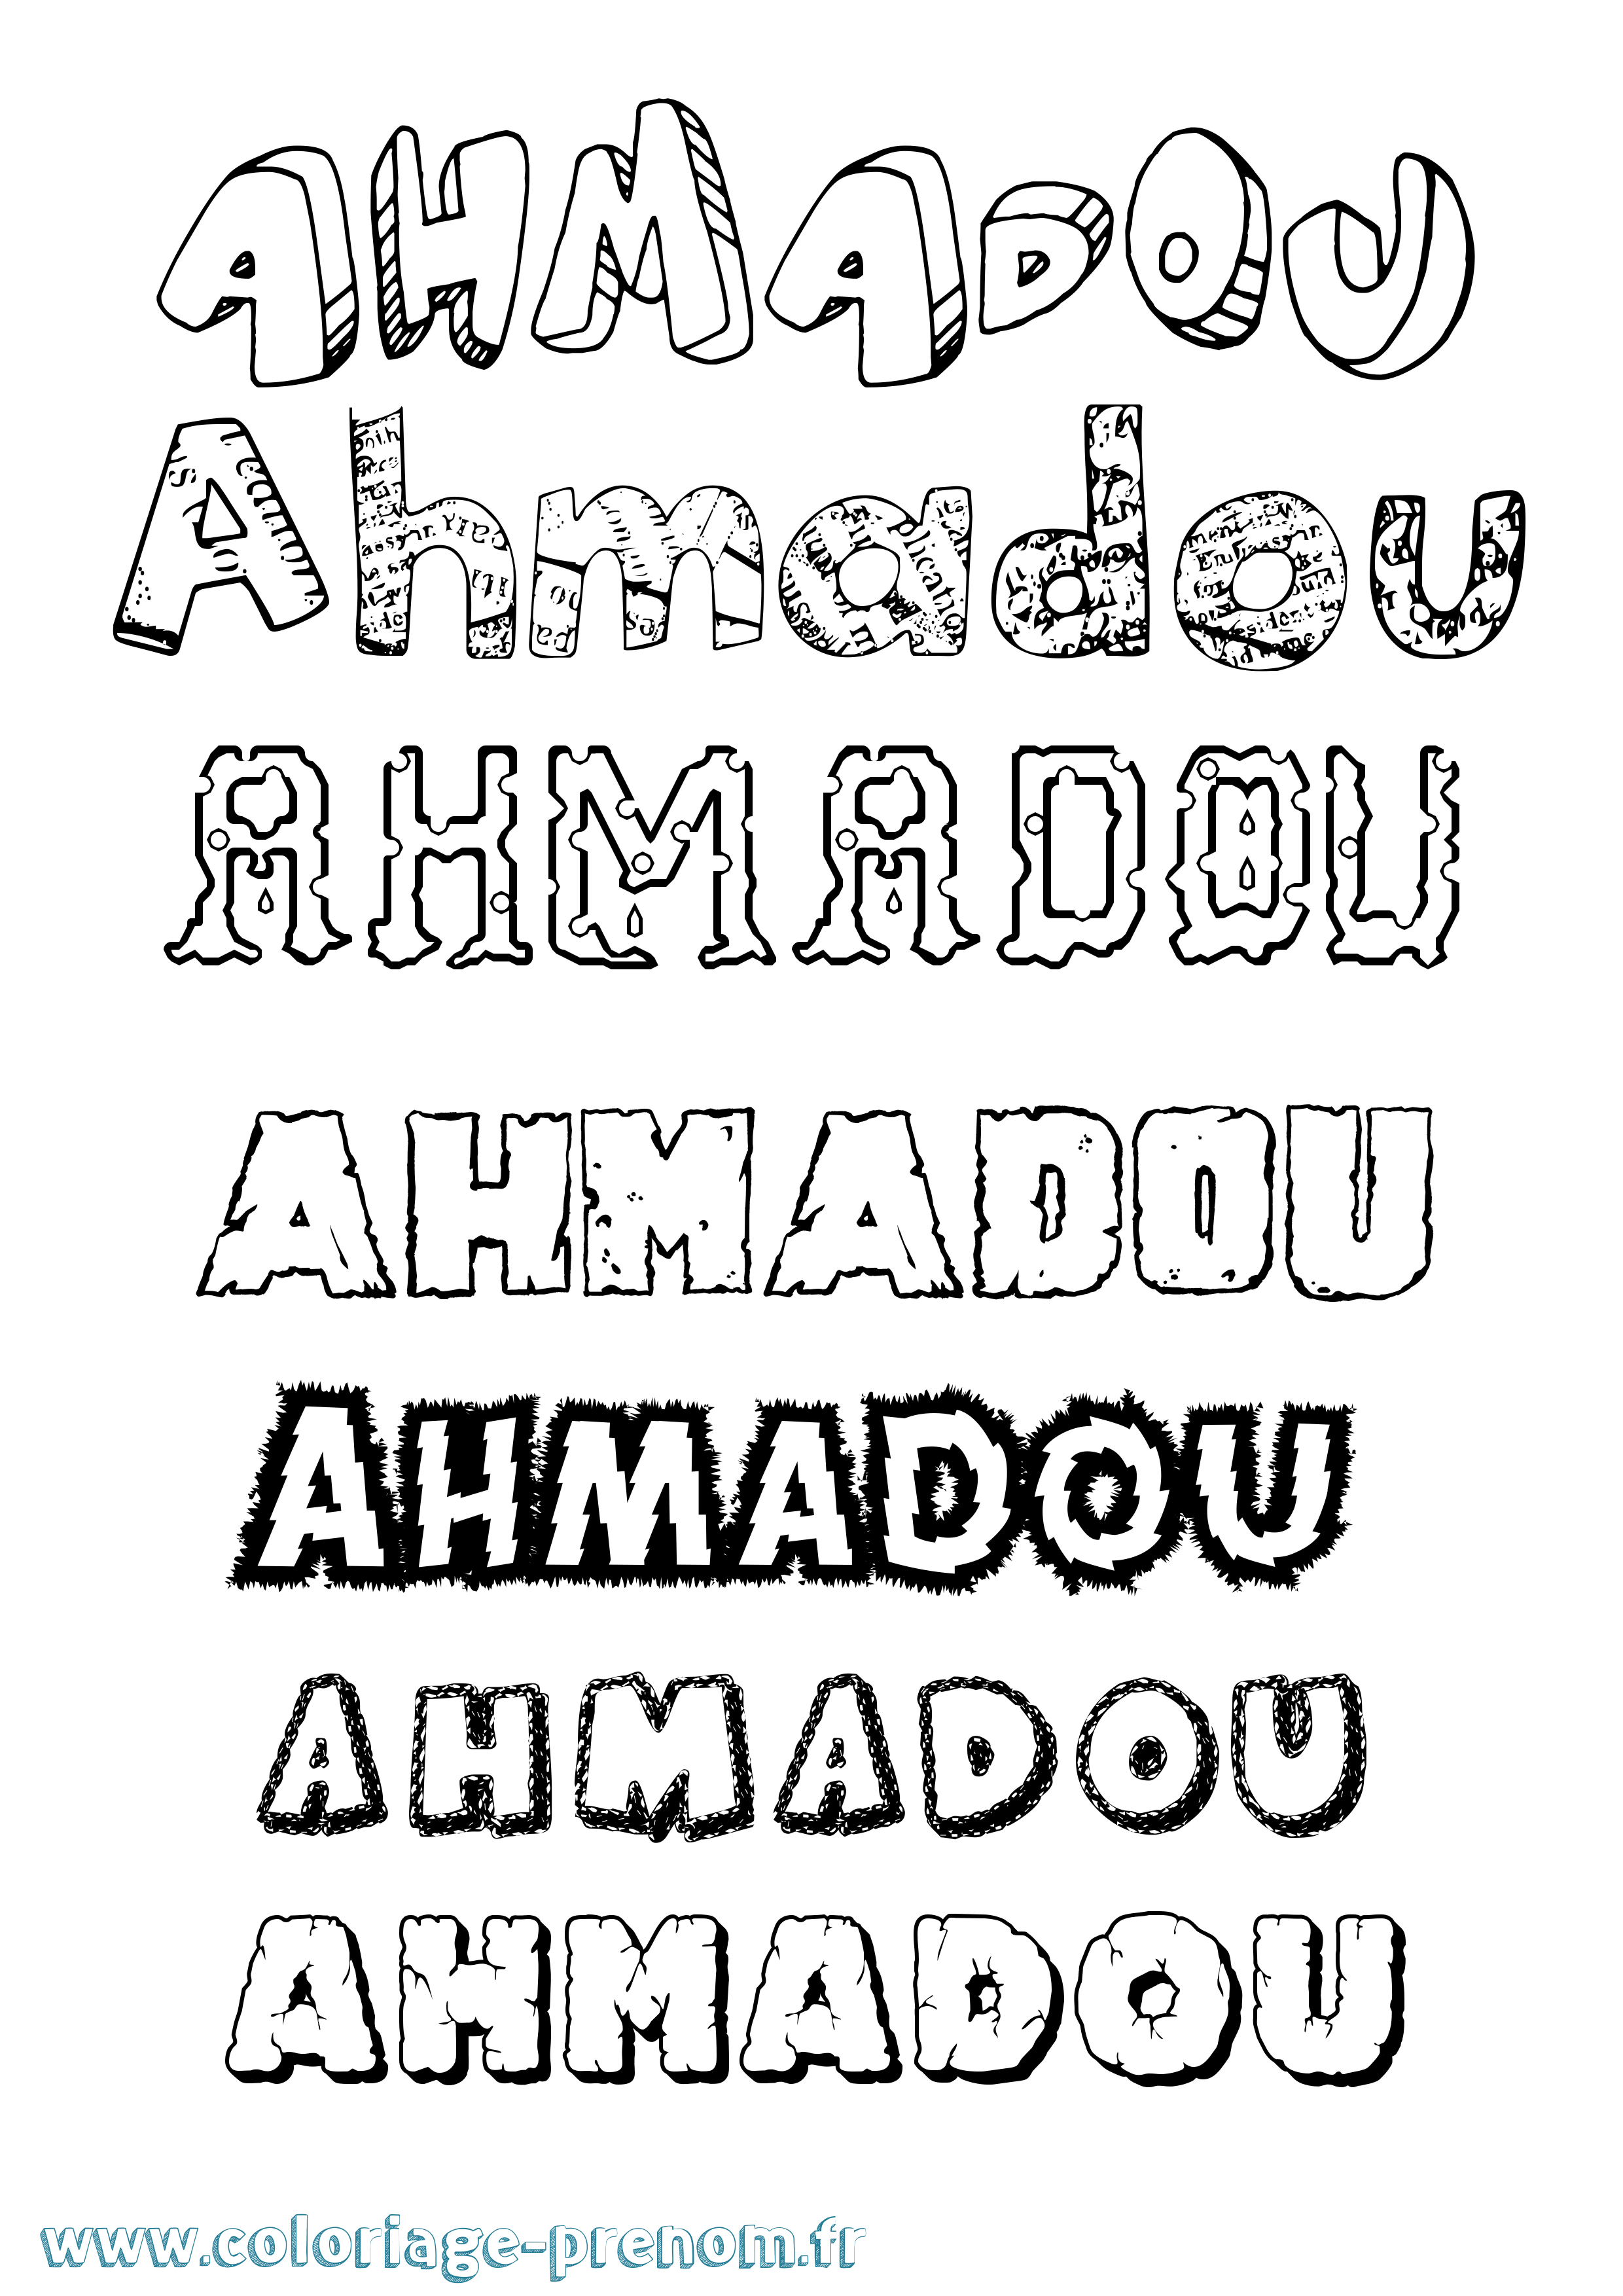 AHMADOU
Ahmadou
AHMADOU
AHMADOU
AHMADOU
AHMADOU
AHMADOU
www.coloriage-prenom.fr